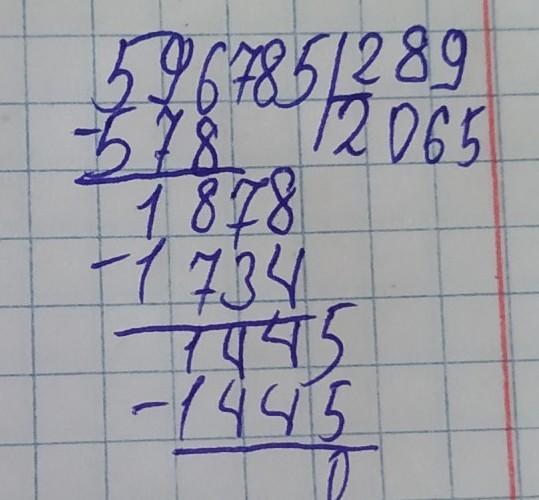 596785|289
-578 |2065
1878
-1734
1445
-1445
0